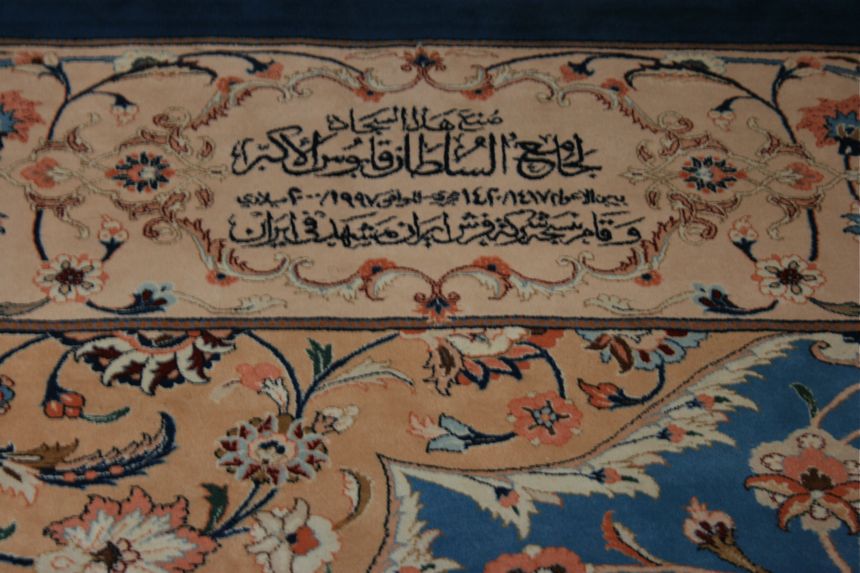 صنع هذا السجاد
لجامع السلطان قابوس الأكبر
بين الاعوام ١٤١٧/١٤٢٠ هجري الموافق ١٩٩٧/٢٠٠٠ ميلادي
وقام بنسجه شركة فرش ايران مشهد في ايران